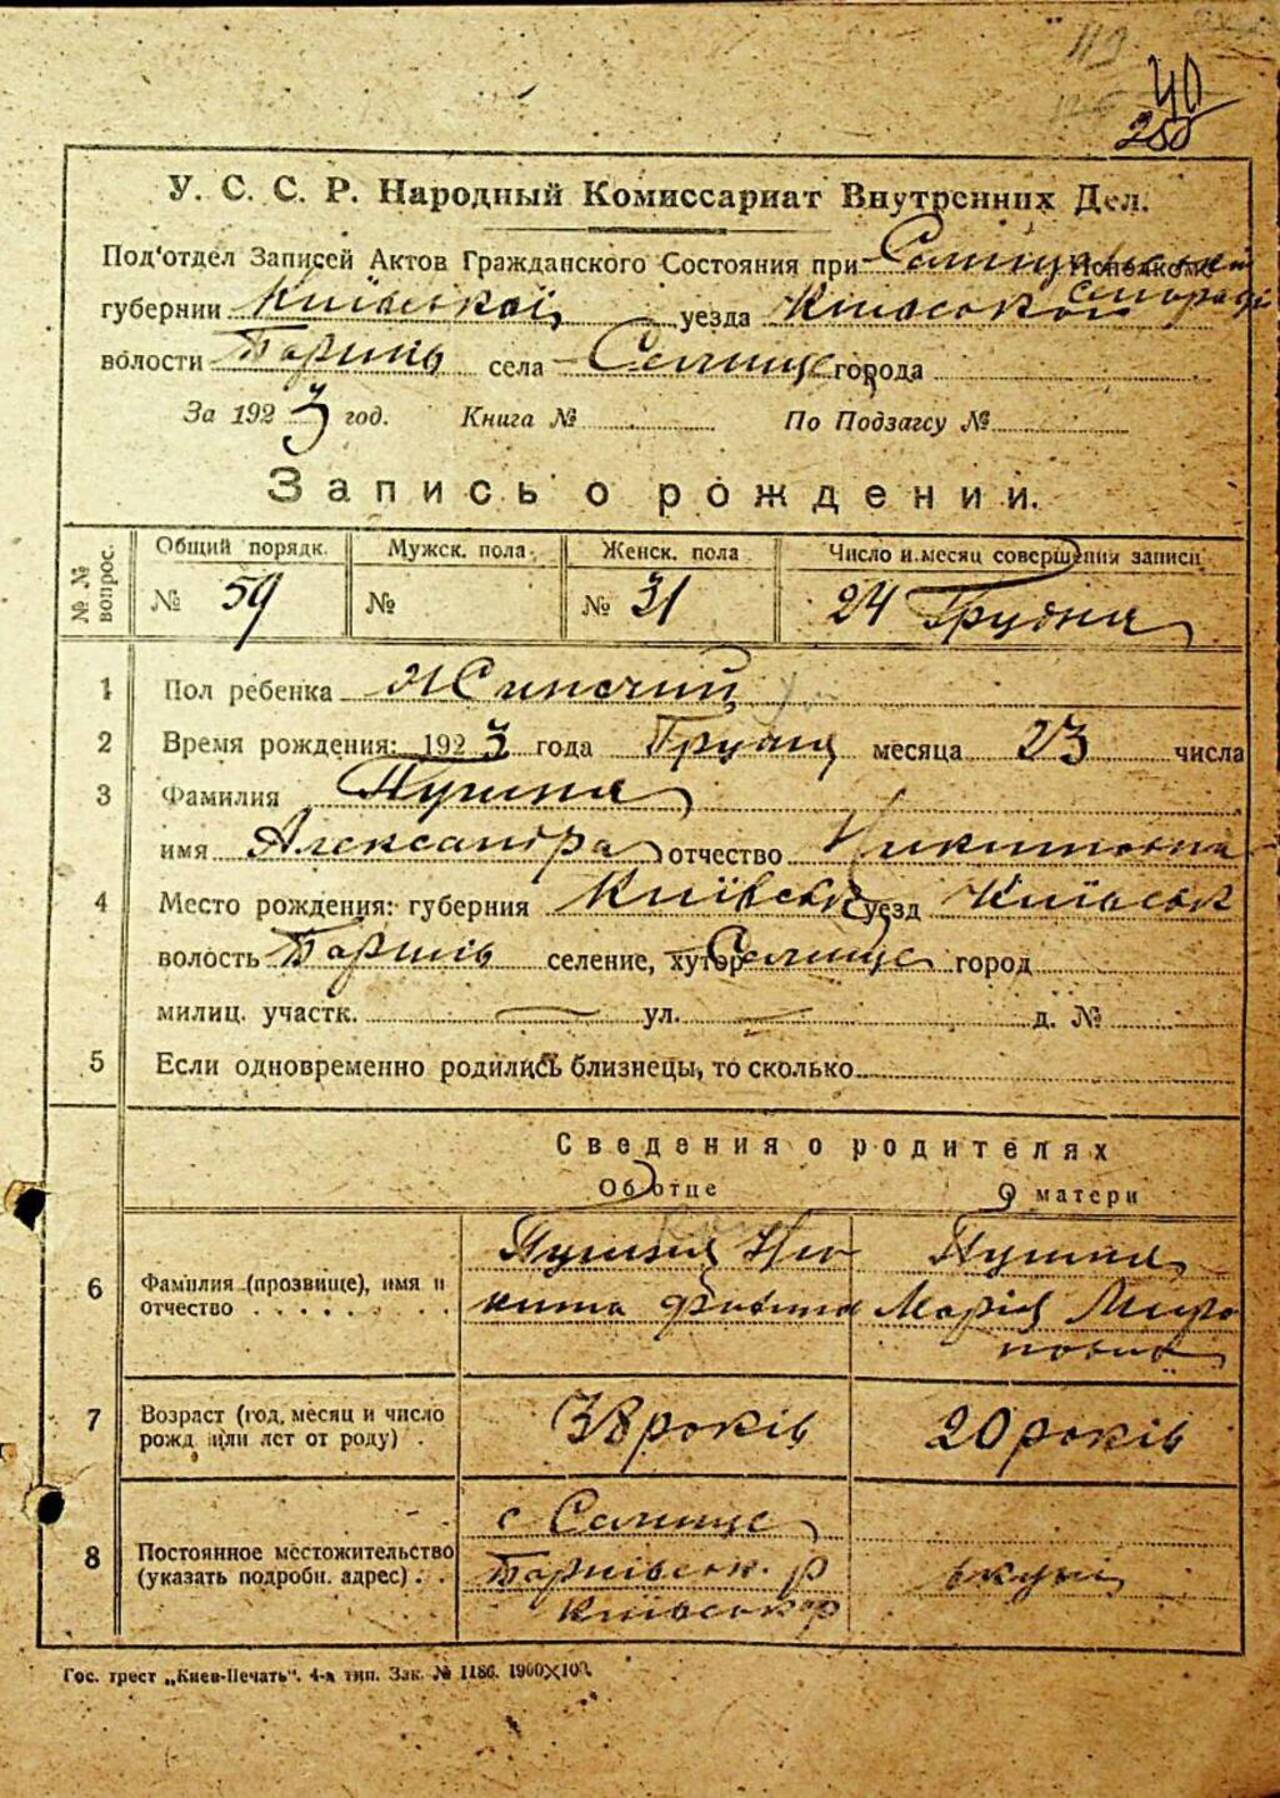 119
40
255
У. С. С. Р. Народный Комиссариат Внутренних Дел.
Под'отдел Записей Актов Гражданского Состояния при Исполком.
губернии Київської уезда Київської
волости села Селище города
За 1923 год. Книга № По Подзагсу №
Запись о рождении.
№№ вопрос. Общий порядк. Мужск. пола Женск. пола Число и месяц совершения записи
№ 59 № № 31 24 Грудня
1 Пол ребенка Жиночий
2 Время рождения: 1923 года Грудня месяца 23 числа
3 Фамилия
имя Александра отчество Никитовна
4 Место рождения: губерния Київськ уезд Київськ
волость селение, хутор Селище город
милиц. участк. — ул. — д. №
5 Если одновременно родились близнецы, то сколько
Сведения о родителях
Об отце О матери
6 Фамилия (прозвище), имя и отчество Ни
кита Марія Миро
новна
7 Возраст (год, месяц и число рожд. или лет от роду) 38 років 20 років
8 Постоянное местожительство (указать подробн. адрес) с Селище
р вкупі
Київськ
Гос. трест „Киев-Печать". 4-я тип. Зак. № 1186. 1900×100.